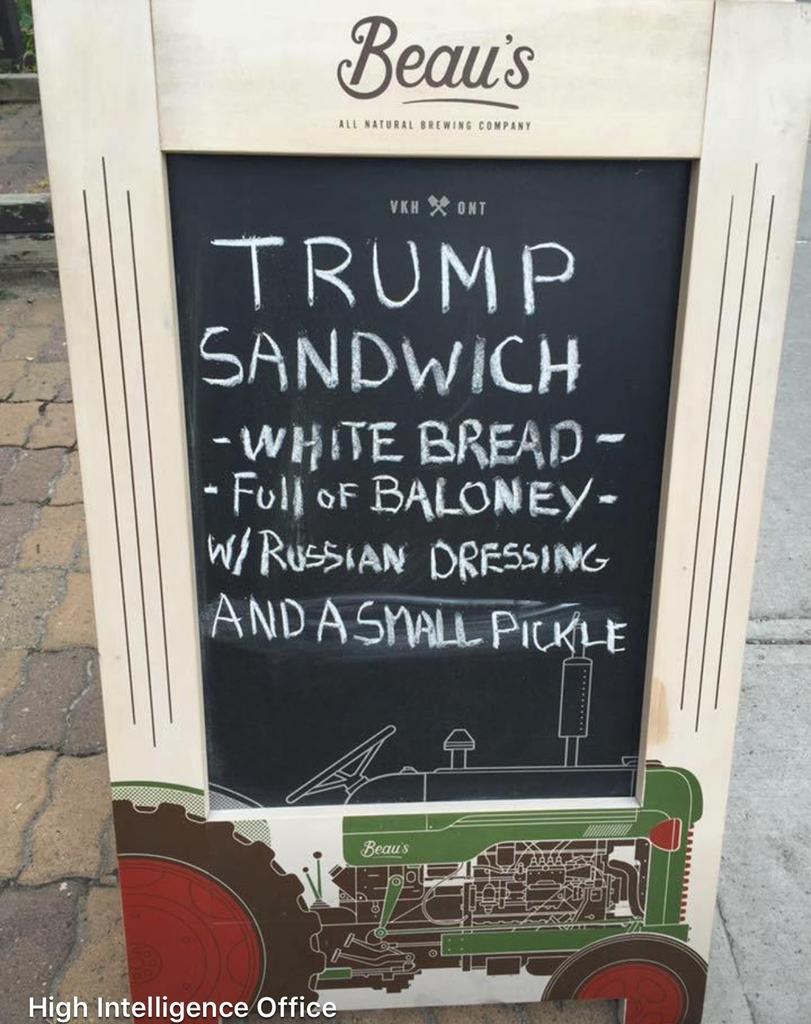 Beau's
ALL NATURAL BREWING COMPANY
VKH ONT
TRUMP
SANDWICH
-WHITE BREAD-
-Full of BALONEY-
W/ RUSSIAN DRESSING
AND A SMALL PICKLE
Beau's
High Intelligence Office